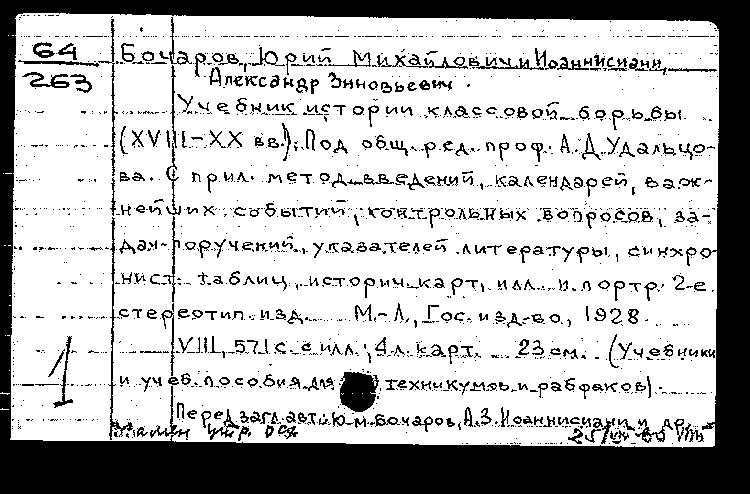 64
263
Бочаров, Юрий Михайлович и Иоаннисиани,
Александр Зиновьевич.
Учебник истории классовой борьбы
(XVIII-XX вв.). Под общ. ред. проф. А.Д Удальцо-
ва. С прил. метод. введений, календарей, важ-
нейших событий, контрольных вопросов, за-
дач-поручений, указателей литературы, синхро-
нист. таблиц, историч. карт, илл. и портр. 2-е
стереотип. изд. М.-Л., Гос. изд-во, 1928.
VIII, 571 с. с илл.; 4 л. карт. 23 см. (Учебники
1
и учеб. пособия для техникумов и рабфаков).
Перед загл. авт.: Ю.М. Бочаров, А.З. Иоаннисиани и др.